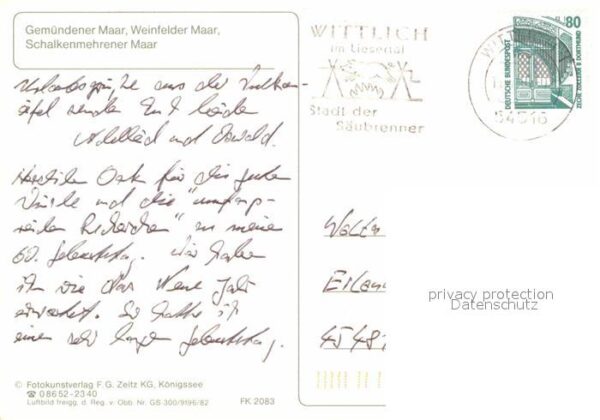 Gemündener Maar, Weinfelder Maar,
Schalkenmehrener Maar
WITTLICH
im Liesertal
Stadt der
Säubrenner
54516
80
DEUTSCHE BUNDESPOST
ZECHE ZOLLERN II DORTMUND
Urlaubsgrüße aus der Vulkan-
eifel senden Euch beiden
Adelheid und Oswald.
Herzlichen Dank für die guten
Wünsche und die "umfang-
reichen Recherchen" zu meinem
60. Geburtstag. Wir haben
ihn wie das Neue Jahr
erwartet. So hatte ich
einen sehr langen Geburtstag.
Walter
45481
privacy protection
Datenschutz
© Fotokunstverlag F. G. Zeitz KG, Königssee
☎ 0 86 52 - 23 40
Luftbild freigg. d. Reg. v. Obb. Nr. GS 300/9196/82
FK 2083